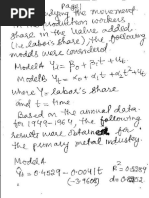 Page 1
studying the movement
in the production workers
share in the value added
(i.e. labor's share), the following
models were considered
Model A Yt = β0 + β1t + ut
Model B Yt = α0 + α1t + α2t² + ut
where Y = labor's share
and t = time
Based on the annual data
for 1949-1964, the following
results were obtained for
the primary metal industry.
Model A
Ŷt = 0.4529 - 0.0041t R² = 0.5284
(-3.9608) d = 0.8252